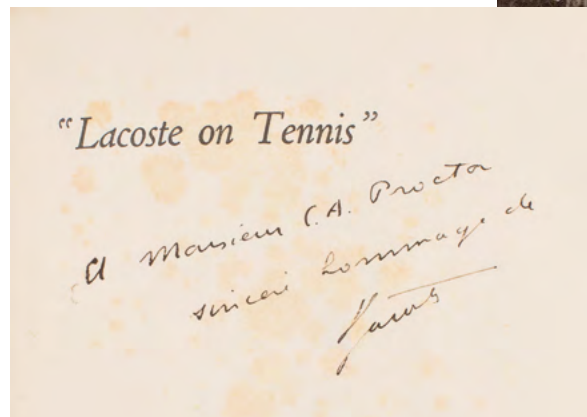 "Lacoste on Tennis"
A Monsieur C.A. Proctor
sincère hommage de